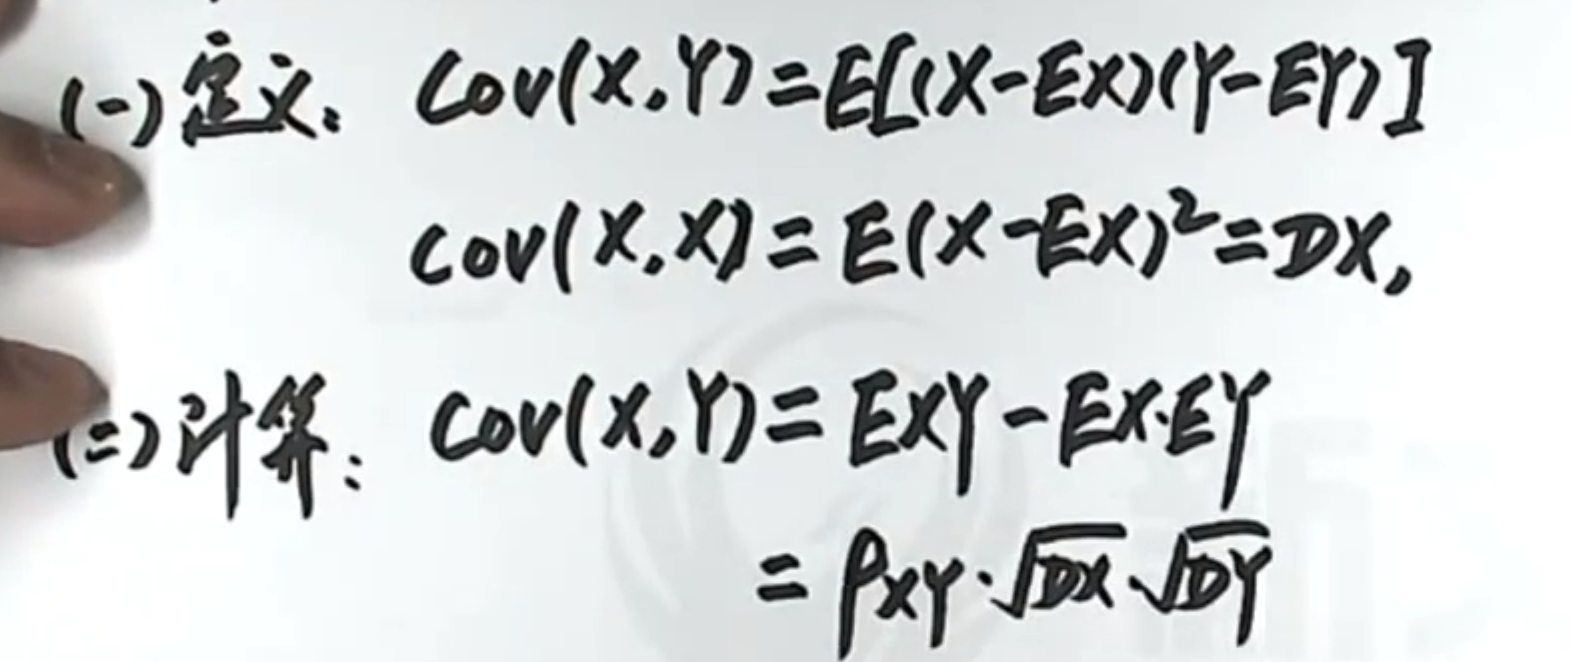 (一)定义: Cov(X,Y)=E[(X-EX)(Y-EY)]
Cov(X,X)=E(X-EX)²=DX,
(二)计算: Cov(X,Y)=EXY-EX·EY
=ρ_{XY}·√DX·√DY